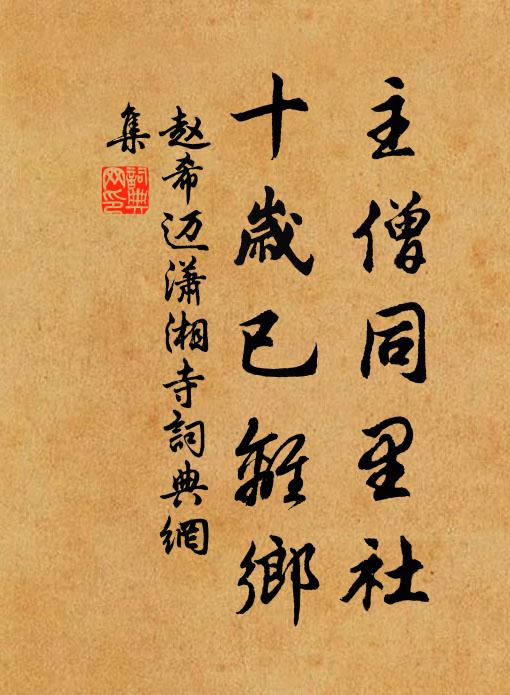 主僧同里社
十歲已離鄉
赵希迈潇湘寺詞典網
集
詞典網印